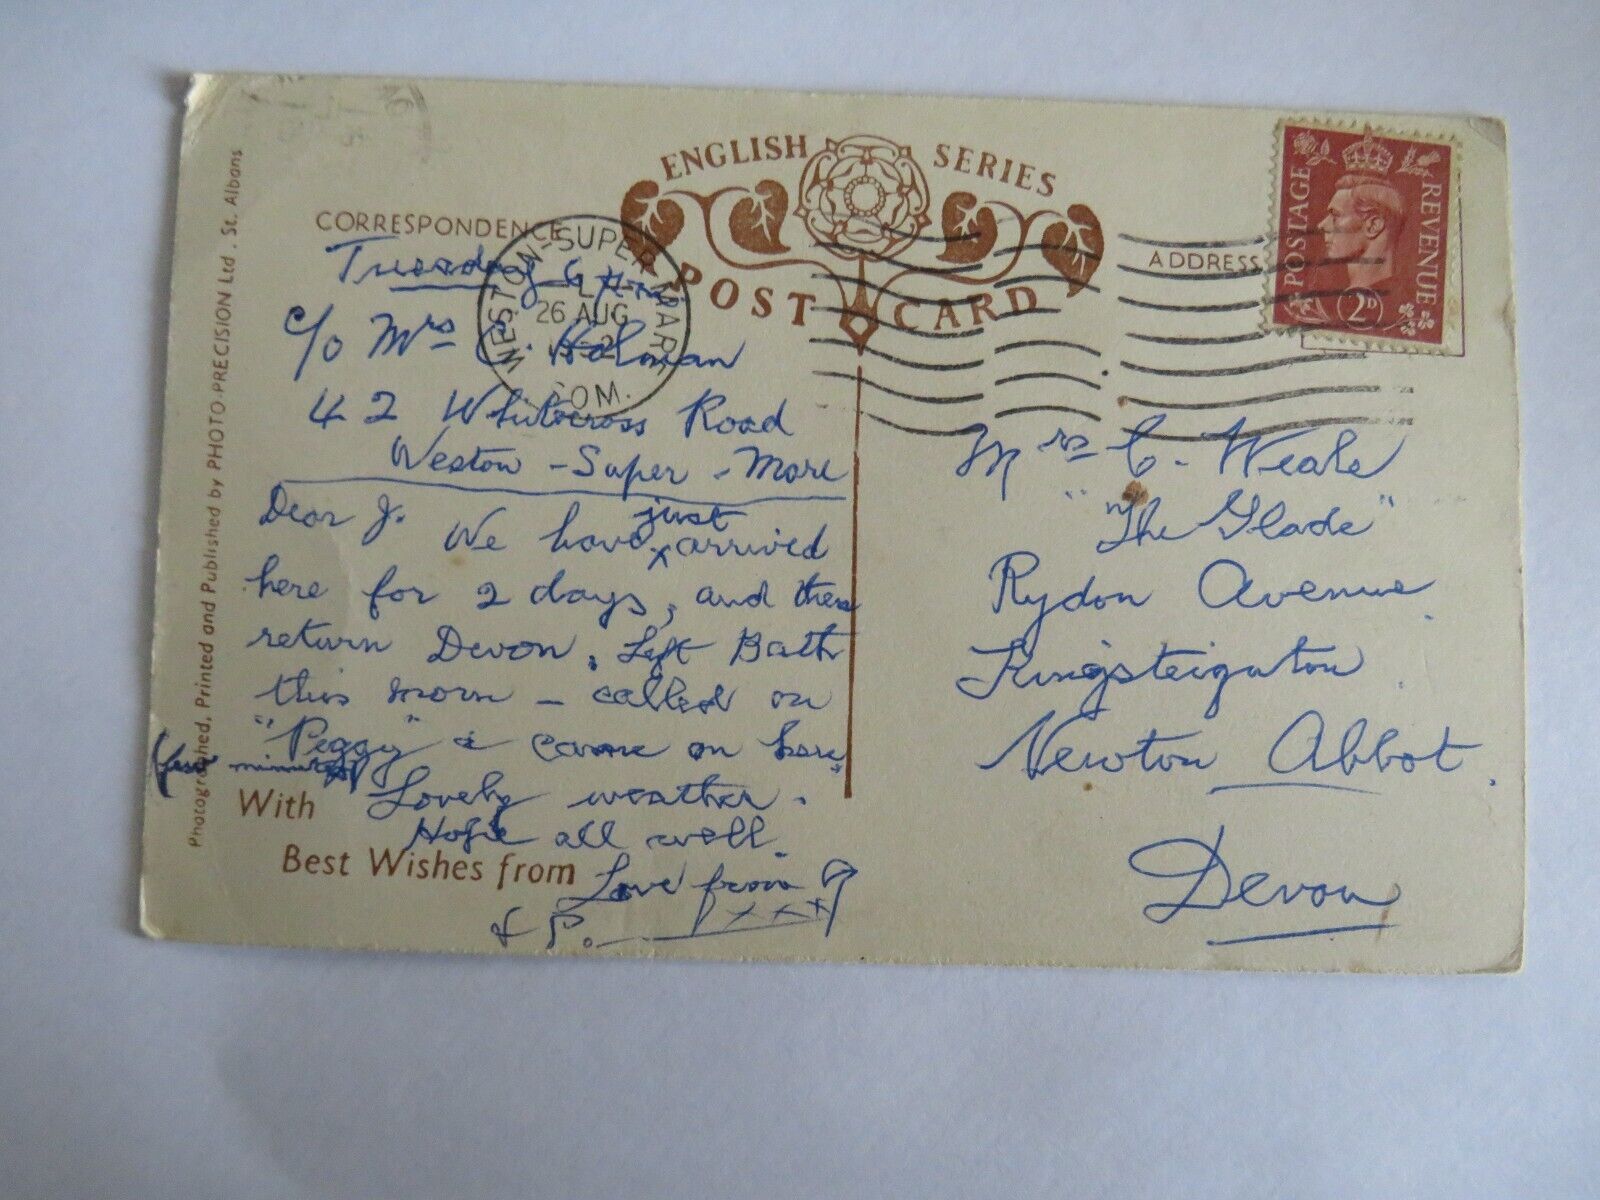 ENGLISH SERIES
POST CARD
CORRESPONDENCE
ADDRESS
POSTAGE REVENUE
2D
WESTON-SUPER-MARE
26 AUG
SOM.
Tuesday 6 p.m.
c/o Mrs C. Holman
42 Whitecross Road
Weston - Super - Mare
Dear J.
We have just arrived
here for 2 days, and then
return Devon. Left Bath
this morn - called on
"Peggy" & came on here
(few minutes)
Lovely weather.
Hope all well.
With
Best Wishes from
Love from
& P. xxx
Mrs C. Weale
"The Glade"
Rydon Avenue
Kingsteignton
Newton Abbot.
Devon
Photographed, Printed and Published by PHOTO-PRECISION Ltd. St. Albans